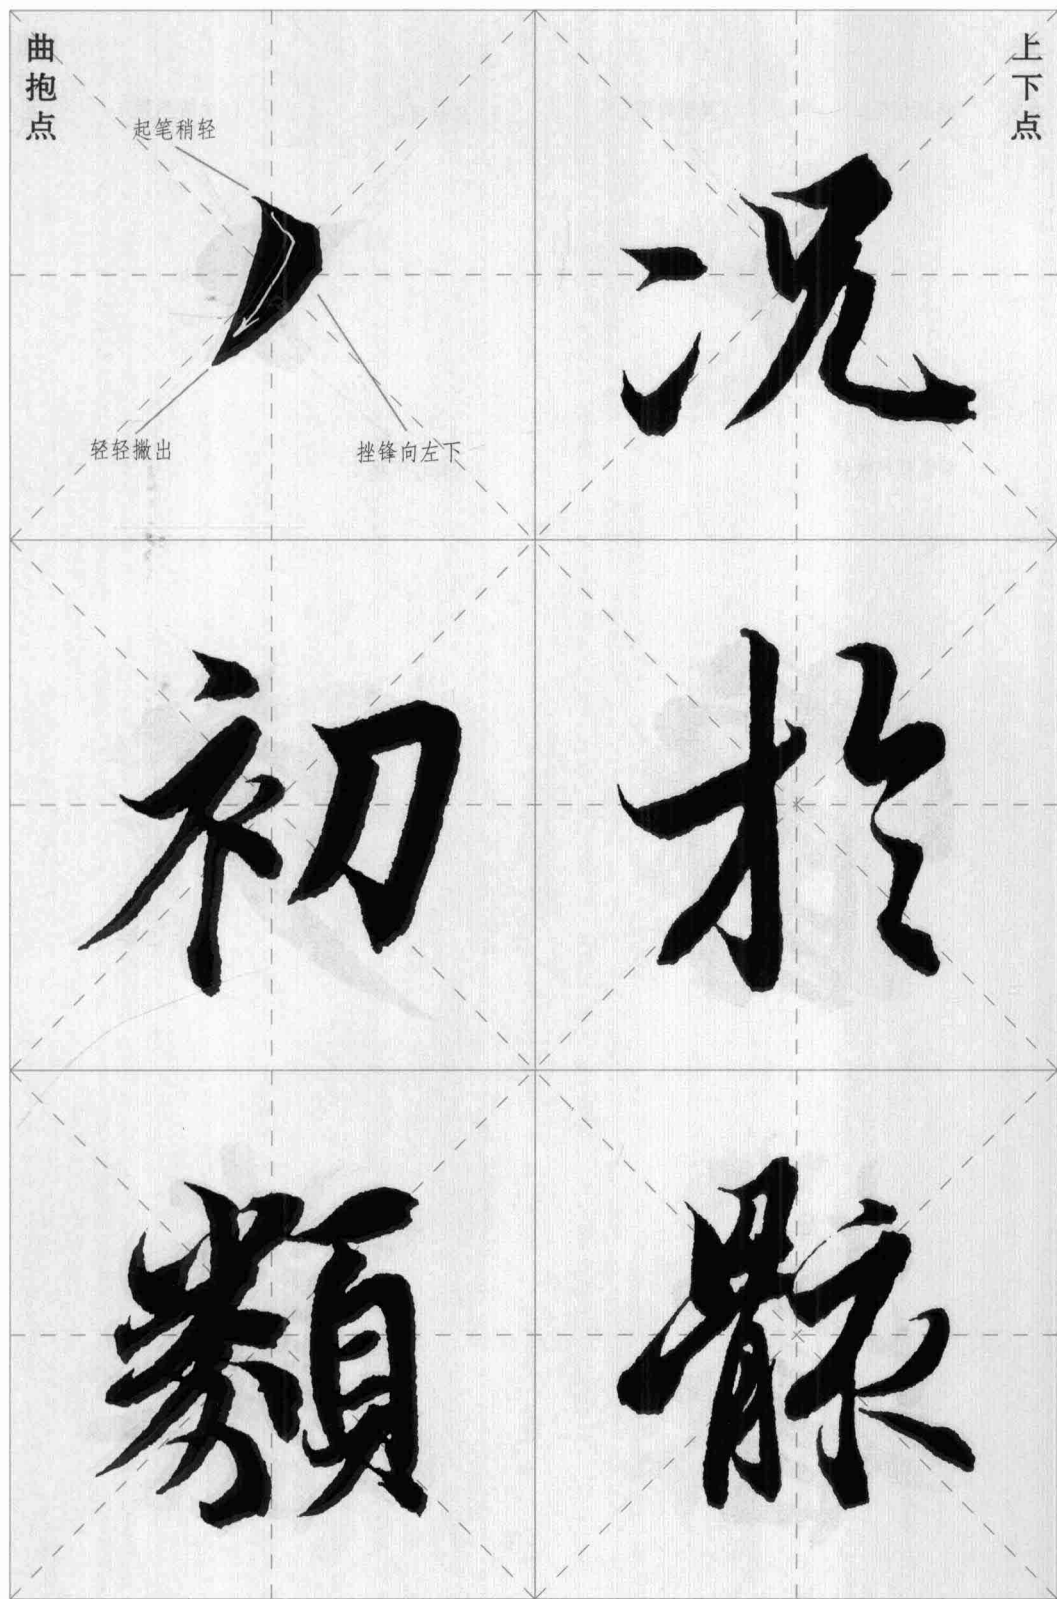 上下点
况
於
骸
曲抱点
起笔稍轻
轻轻撇出
挫锋向左下
初
类